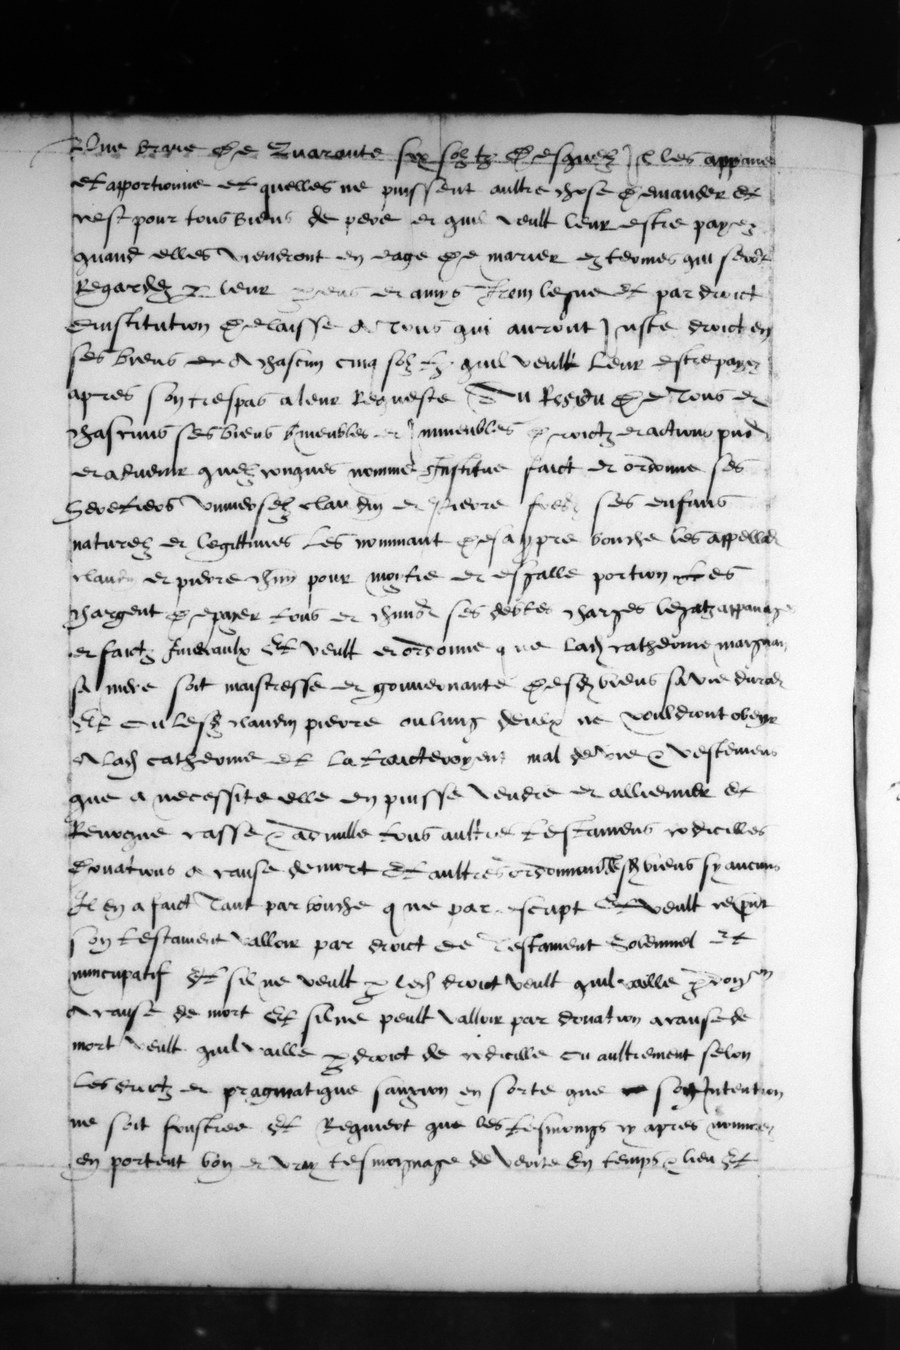 Une brave de Quarante six solz tz Desquelz Il les appanne
Et apportionne Et quelles ne puissent aultre chose demander Et
cest pour tous biens de pere et quil veult leur estre payez
quand elles viendront en eage de marier ez termes qui seront
Regardez p leur et amys Item legue Et par droict
dinstitution delaisse A Tous qui auront Juste droict en
ses biens et A chascun cinq solz tz quil veult Leur estre payez
apres son trespas a leur Requeste Du Residu De Tous et
chascuns ses biens meubles et Immeubles droictz et actions
et advenir quelzconques nomme Institue faict et ordonne ses
heretiers universelz claudin et pierre ses enfans
naturelz et legittimes Les nommant de sa ppre bouche les appellant
claudin et pierre pour moytie et esgalle portion Les
chargent de payer tous et ses debtes charges legatz appanages
et faictz funeraulx Et veult et ordonne que Lad catherine
sa mere soit maistresse et gouvernante desd biens sa vie durant
Et ou Lesd claudin pierre ou lung deulx ne vouldront obeyr
A Lad catherine Et La traicteroyent mal de vivre & vestemens
que a necessite elle en puisse vendre et alliener Et
Revocque casse & adnulle tous aultres testamens codicilles
Donations A cause de mort Et aultres desd biens sy aucuns
Il en a faict Tant par bouche que par escript Et veult
son testament valloir par droict de Testament Solemnel Et
nuncupatif Et sil ne veult p led droict veult quil vaille p don
A cause de mort Et sil ne peult valloir par donation a cause de
mort veult quil vaille p droict de codicille ou aultrement selon
Les et pragmatique sanxion en sorte que son Intention
ne soit frustree Et Requiert que les tesmoings cy apres nommez
en portent bon et vray tesmoignage de verite En temps & lieu Et